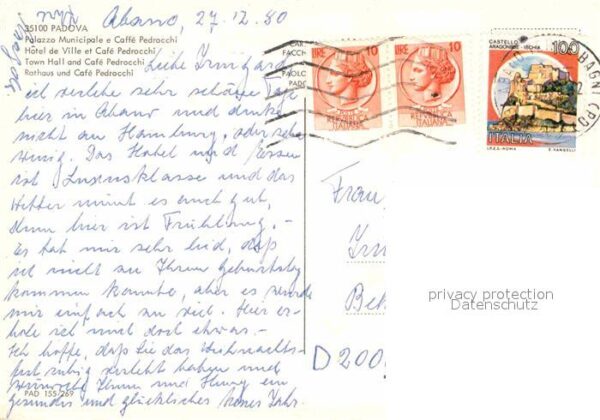 Abano, 27.12.80
35100 PADOVA
Palazzo Municipale e Caffè Pedrocchi
Hôtel de Ville et Café Pedrocchi
Town Hall and Café Pedrocchi
Rathaus und Café Pedrocchi
Liebe Irmgard
ich verlebe sehr schöne Tage
hier in Abano und denke
nicht an Hamburg, oder sehr
wenig. Das Hotel und Essen
ist Luxusklasse und das
Wetter meint es auch gut,
denn hier ist Frühling. -
Es hat mir sehr leid, daß
ich nicht zu Ihrem Geburtstag
kommen konnte, aber es wurde
mir einfach zu viel. Hier er-
hole ich mich doch etwas. -
Ich hoffe, daß Sie das Weihnachts-
fest ruhig verlebt haben und
wünsche Ihnen und Harry ein
gesundes und glückliches neues Jahr.
PAD 155/269
LIRE 10
REPUBBLICA
ITALIANA
LIRE 10
REPUBBLICA
ITALIANA
CASTELLO
ARAGONESE - ISCHIA
100
ITALIA
I.P.Z.S. - ROMA E. VANGELLI
Frau
D 200
privacy protection
Datenschutz